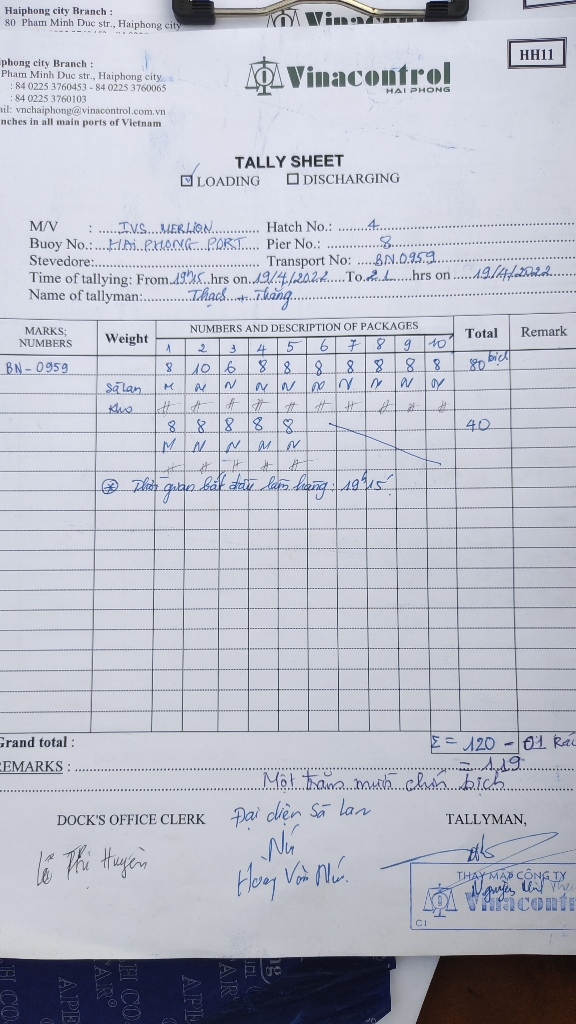 Haiphong city Branch :
80 Pham Minh Duc str., Haiphong city
Vinacontrol
HH11
iphong city Branch :
Pham Minh Duc str., Haiphong city
: 84 0225 3760453 - 84 0225 3760065
: 84 0225 3760103
ail: vnchaiphong@vinacontrol.com.vn
nches in all main ports of Vietnam
Vinacontrol
HAI PHONG
TALLY SHEET
☑ LOADING ☐ DISCHARGING
M/V : IVS MERLION Hatch No.: 4
Buoy No.: HAI PHONG PORT Pier No.: 8
Stevedore: Transport No: BN.0959
Time of tallying: From 19h15 hrs on 19/4/2022 To 21 hrs on 19/4/2022
Name of tallyman: Thạch + Thăng
MARKS; NUMBERS Weight NUMBERS AND DESCRIPTION OF PACKAGES Total Remark
1 2 3 4 5 6 7 8 9 10
BN-0959 8 10 6 8 8 8 8 8 8 8 80 bịch
Sà lan M N N N N N N N N N
Kho # # # # # # # # # #
8 8 8 8 8 40
M N N M N
# # # # #
* Thời gian bắt đầu làm hàng: 19h15'
Grand total : Σ = 120 - 01 Rác
= 119
REMARKS :
Một trăm mười chín bịch
DOCK'S OFFICE CLERK Đại diện Sà lan TALLYMAN,
Nú
Lê Thị Huyền Hoàng Văn Nú.
THAY MẶT CÔNG TY
Vinacontr
CI